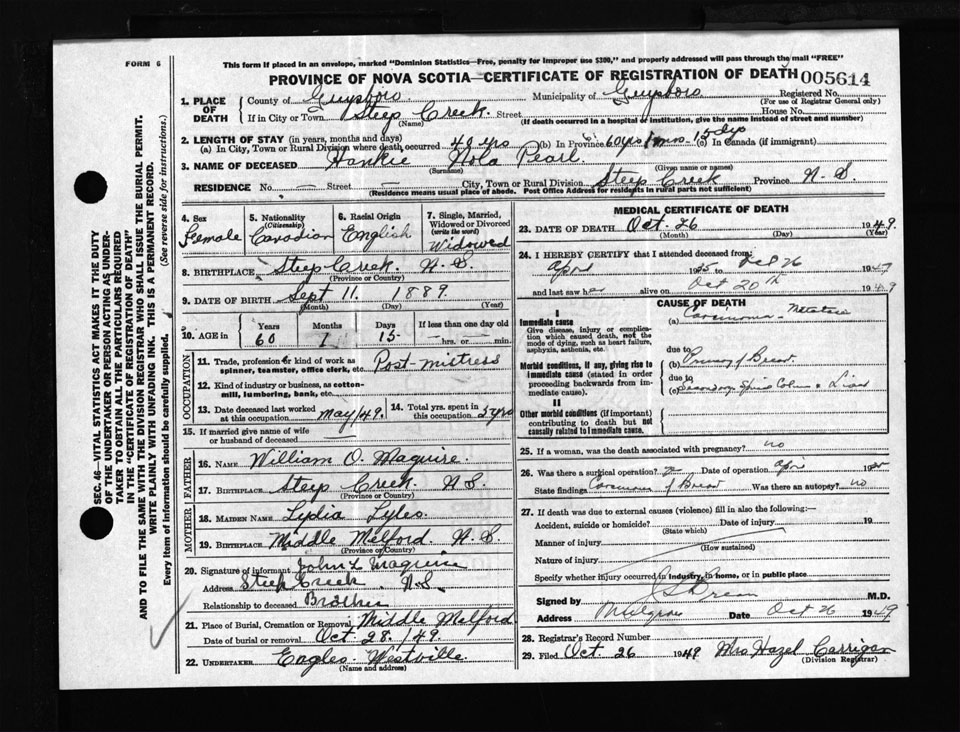 FORM 6
This form if placed in an envelope, marked "Dominion Statistics—Free, penalty for improper use $300," and properly addressed will pass through the mail "FREE"
PROVINCE OF NOVA SCOTIA—CERTIFICATE OF REGISTRATION OF DEATH 005614
1. PLACE OF DEATH
County of Guysboro Municipality of Guysboro Registered No.
(For use of Registrar General only)
If in City or Town Steep Creek Street House No.
(Name) (If death occurred in a hospital or institution, give the name instead of street and number)
2. LENGTH OF STAY (in years, months and days)
(a) In City, Town or Rural Division where death occurred 48 yrs (b) In Province 60 yrs 1 mos 15 dys (c) In Canada (if immigrant)
3. NAME OF DECEASED Hankie Hola Pearl
(Surname) (Given name or names)
RESIDENCE No. — Street — City, Town or Rural Division Steep Creek Province N.S.
(Residence means usual place of abode. Post Office Address for rural parts not sufficient)
4. Sex Female
5. Nationality (Citizenship) Canadian
6. Racial Origin English
7. Single, Married, Widowed or Divorced (write the word) Widowed
8. BIRTHPLACE Steep Creek N.S.
(Province or Country)
9. DATE OF BIRTH Sept 11. 1889.
(Month) (Day) (Year)
10. AGE in Years 60 Months 1 Days 15 If less than one day old —hrs. or — min.
OCCUPATION
11. Trade, profession or kind of work as spinner, teamster, office clerk, etc. Post mistress
12. Kind of industry or business, as cotton-mill, lumbering, bank, etc.
13. Date deceased last worked at this occupation May/49.
14. Total yrs. spent in this occupation
15. If married give name of wife or husband of deceased —
FATHER
16. NAME William O. Maguire.
17. BIRTHPLACE Steep Creek N.S.
(Province or Country)
MOTHER
18. MAIDEN NAME Lydia Lyles
19. BIRTHPLACE Middle Melford. N.S.
(Province or Country)
20. Signature of informant John L Maguire
Address Steep Creek N.S
Relationship to deceased Brother
21. Place of Burial, Cremation or Removal Middle Melford
Date of burial or removal Oct 28. /49.
22. UNDERTAKER Engles Westville
(Name and address)
MEDICAL CERTIFICATE OF DEATH
23. DATE OF DEATH Oct. 26 1949.
(Month) (Day) (Year)
24. I HEREBY CERTIFY that I attended deceased from:
April to Oct 26
and last saw her alive on Oct 20th 1949
CAUSE OF DEATH
I
Immediate cause
Give disease, injury or complication which caused death, not the mode of dying, such as heart failure, asphyxia, asthenia, etc.
(a) Carcinoma
Morbid conditions, if any, giving rise to immediate cause (stated in order proceeding backwards from immediate cause).
due to
(b) Primary of Breast.
due to
(c) Secondary Spinal Column &
II
Other morbid conditions (if important) contributing to death but not causally related to immediate cause.
25. If a woman, was the death associated with pregnancy? no
26. Was there a surgical operation? Date of operation Apr 19
State findings Carcinoma of Breast Was there an autopsy? no
27. If death was due to external causes (violence) fill in also the following:—
Accident, suicide or homicide? Date of injury 19
(State which)
Manner of injury
(How sustained)
Nature of injury
Specify whether injury occurred in industry, in home, or in public place
Signed by M.D.
Address Mulgrave Date Oct 26 1949
28. Registrar's Record Number
29. Filed Oct. 26 1949 Mrs Hazel Carrigan
(Division Registrar)
SEC. 46—VITAL STATISTICS ACT MAKES IT THE DUTY
OF THE UNDERTAKER OR PERSON ACTING AS UNDER-
TAKER TO OBTAIN ALL THE PARTICULARS REQUIRED
IN THE "CERTIFICATE OF REGISTRATION OF DEATH"
AND TO FILE THE SAME WITH THE DIVISION REGISTRAR WHO SHALL ISSUE THE BURIAL PERMIT.
WRITE PLAINLY WITH UNFADING INK. THIS IS A PERMANENT RECORD.
Every item of information should be carefully supplied. (See reverse side for instructions.)